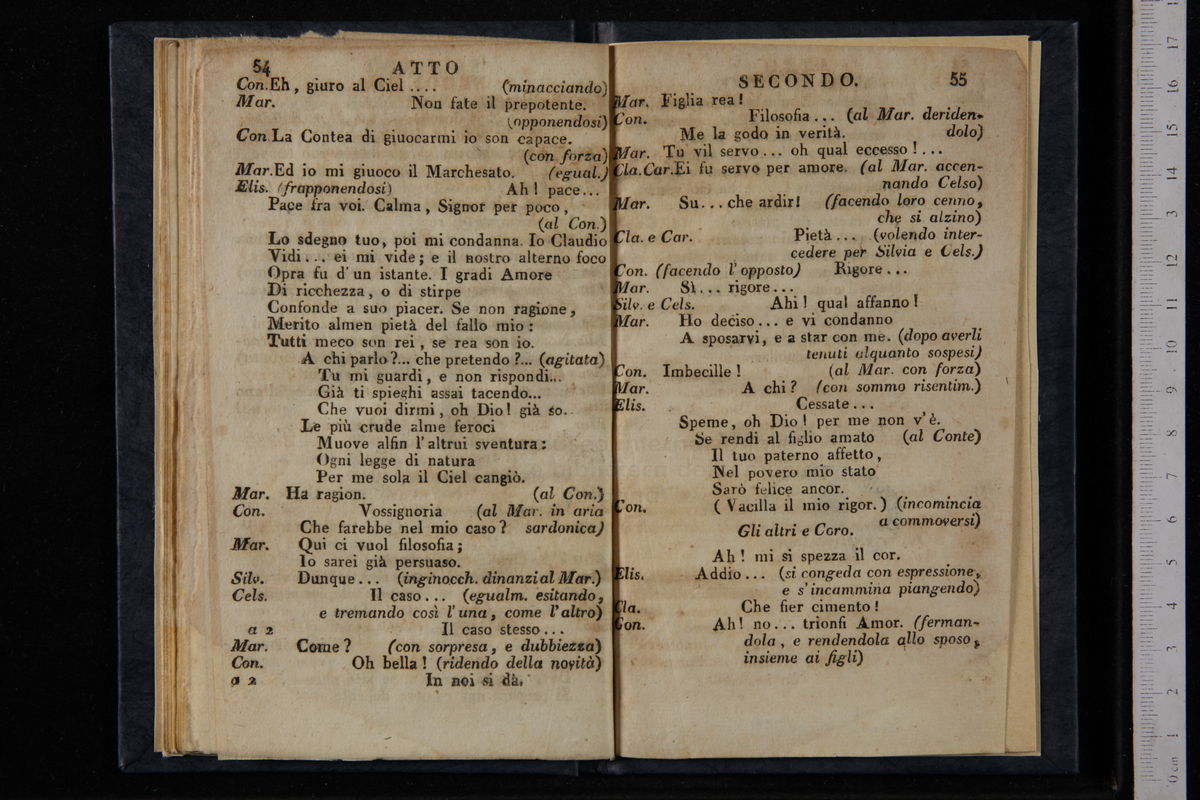 54 ATTO
Con. Eh, giuro al Ciel .... (minacciando)
Mar. Non fate il prepotente.
(opponendosi)
Con. La Contea di giuocarmi io son capace.
(con forza)
Mar. Ed io mi giuoco il Marchesato. (egual.)
Elis. (frapponendosi) Ah! pace...
Pace fra voi. Calma, Signor per poco,
(al Con.)
Lo sdegno tuo, poi mi condanna. Io Claudio
Vidi... ei mi vide; e il nostro alterno foco
Opra fu d'un istante. I gradi Amore
Di ricchezza, o di stirpe
Confonde a suo piacer. Se non ragione,
Merito almen pietà del fallo mio:
Tutti meco son rei, se rea son io.
A chi parlo?... che pretendo?... (agitata)
Tu mi guardi, e non rispondi...
Già ti spieghi assai tacendo...
Che vuoi dirmi, oh Dio! già so..
Le più crude alme feroci
Muove alfin l'altrui sventura:
Ogni legge di natura
Per me sola il Ciel cangiò.
Mar. Ha ragion. (al Con.)
Con. Vossignoria (al Mar. in aria
Che farebbe nel mio caso? sardonica)
Mar. Qui ci vuol filosofia;
Io sarei già persuaso.
Silv. Dunque... (inginocch. dinanzi al Mar.)
Cels. Il caso... (egualm. esitando,
e tremando così l'una, come l'altro)
a 2 Il caso stesso...
Mar. Come? (con sorpresa, e dubbiezza)
Con. Oh bella! (ridendo della novità)
a 2 In noi si dà.
SECONDO. 55
Mar. Figlia rea!
Con. Filosofia... (al Mar. deriden-
Me la godo in verità. dolo)
Mar. Tu vil servo... oh qual eccesso!...
Cla. Car. Ei fu servo per amore. (al Mar. accen-
nando Celso)
Mar. Su... che ardir! (facendo loro cenno,
che si alzino)
Cla. e Car. Pietà... (volendo inter-
cedere per Silvia e Cels.)
Con. (facendo l'opposto) Rigore...
Mar. Sì... rigore...
Silv. e Cels. Ahi! qual affanno!
Mar. Ho deciso... e vi condanno
A sposarvi, e a star con me. (dopo averli
tenuti alquanto sospesi)
Con. Imbecille! (al Mar. con forza)
Mar. A chi? (con sommo risentim.)
Elis. Cessate...
Speme, oh Dio! per me non v'è.
Se rendi al figlio amato (al Conte)
Il tuo paterno affetto,
Nel povero mio stato
Sarò felice ancor.
Con. (Vacilla il mio rigor.) (incomincia
a commoversi)
Gli altri e Coro.
Ah! mi si spezza il cor.
Elis. Addio... (si congeda con espressione,
e s'incammina piangendo)
Cla. Che fier cimento!
Con. Ah! no... trionfi Amor. (ferman-
dola, e rendendola allo sposo,
insieme ai figli)
0 cm 1 2 3 4 5 6 7 8 9 10 11 12 13 14 15 16 17